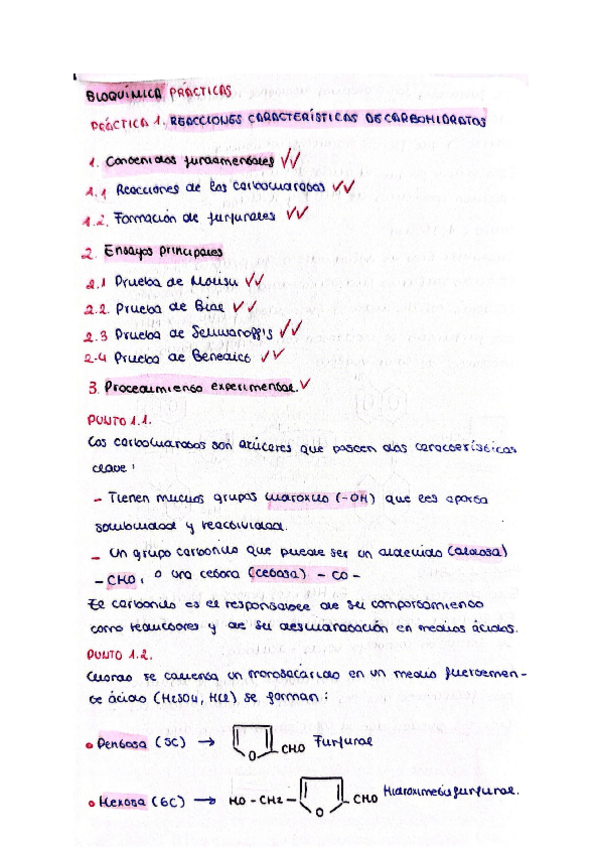 BIOQUÍMICA PRÁCTICAS
PRÁCTICA 1. REACCIONES CARACTERÍSTICAS DE CARBOHIDRATOS
1. Contenidos fundamentales ✓✓
1.1 Reacciones de los carbohidratos ✓✓
1.2. Formación de furfurales ✓✓
2. Ensayos principales
2.1 Prueba de Molish ✓✓
2.2. Prueba de Bial ✓✓
2.3 Prueba de Seliwanoff's ✓✓
2.4 Prueba de Benedict ✓✓
3. Procedimiento experimental. ✓
PUNTO 1.1.
Los carbohidratos son azúcares que poseen dos características
clave:
- Tienen muchos grupos hidroxilo (-OH) que les aporta
solubilidad y reactividad.
- Un grupo carbonilo que puede ser un aldehído (aldosa)
- CHO, o una cetona (cetosa) - CO -
El carbonilo es el responsable de su comportamiento
como reductores y de su deshidratación en medios ácidos.
PUNTO 1.2.
Cuando se calienta un monosacárido en un medio fuertemen-
te ácido (H2SO4, HCl) se forman:
• Pentosa (5C) → O CHO Furfural
• Hexosa (6C) → HO - CH2 - O CHO Hidroximetilfurfural.